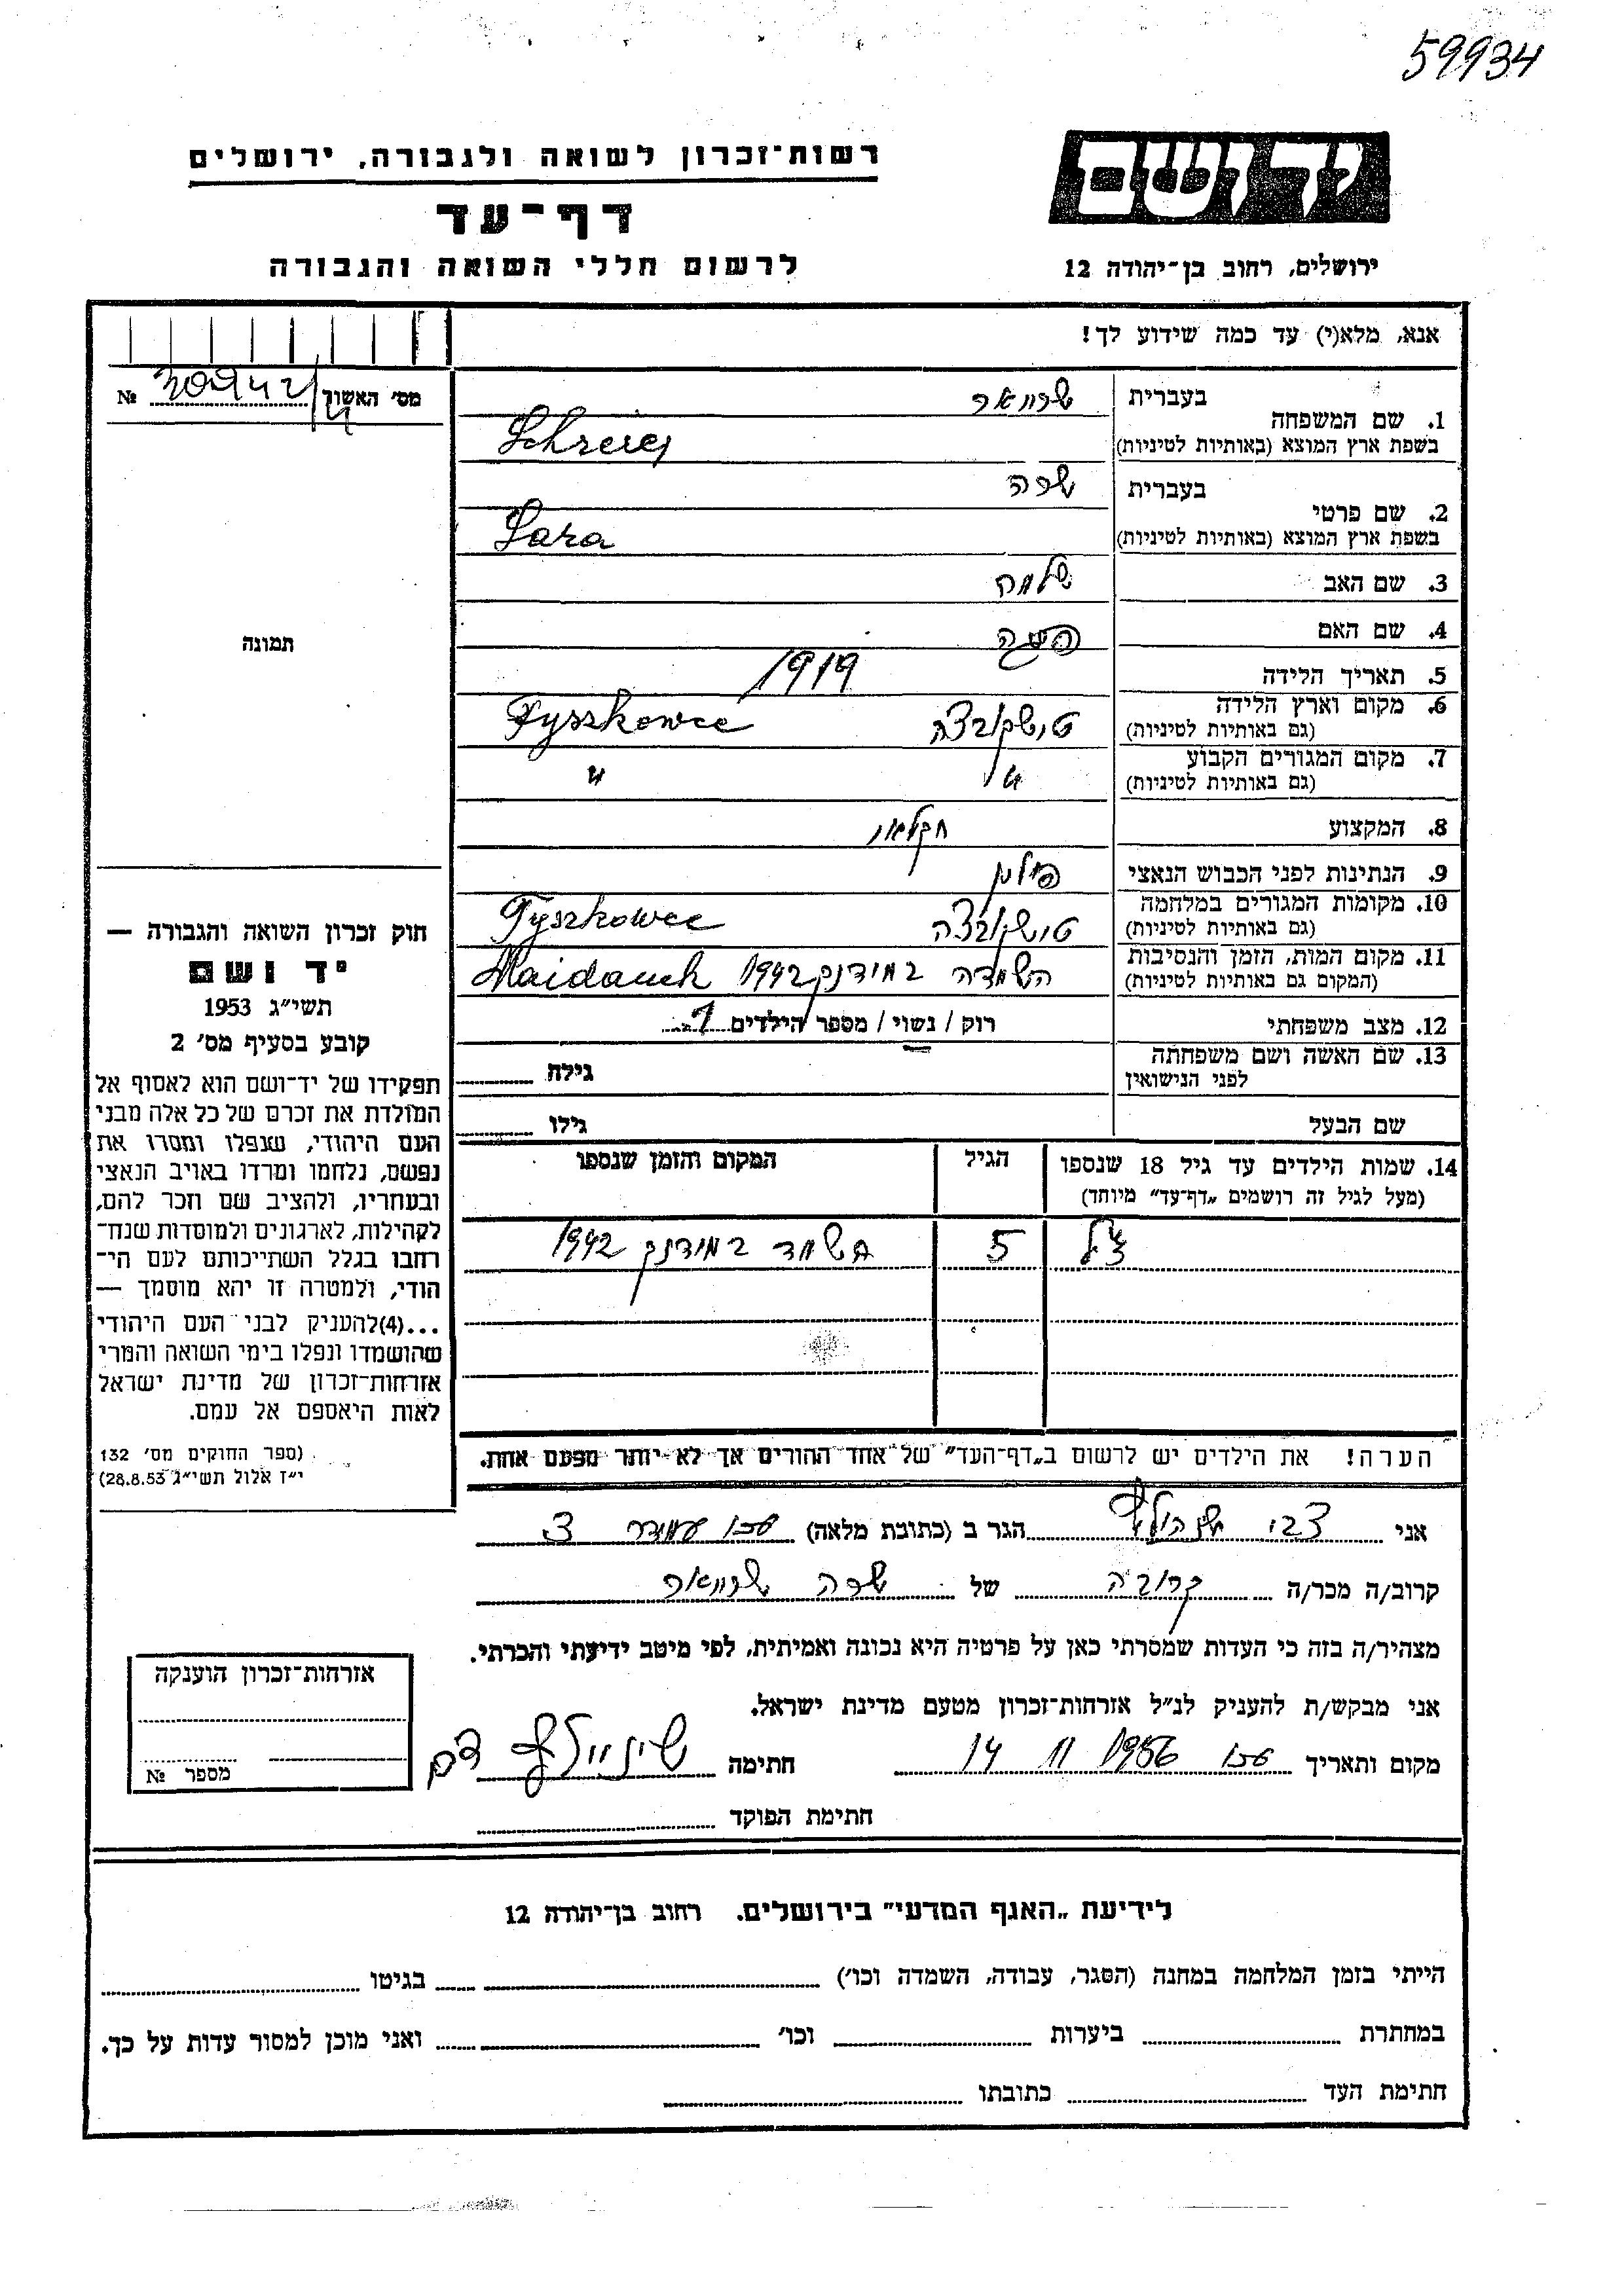 59934
רשות־זכרון לשואה ולגבורה, ירושלים
יד ושם
דף־עד
לרשום חללי השואה והגבורה
ירושלים, רחוב בן־יהודה 12
אנא, מלא(י) עד כמה שידוע לך!
מס׳ האשוך №
1. שם המשפחה בעברית
בשפת ארץ המוצא (באותיות לטיניות) Schreier
2. שם פרטי בעברית שרה
בשפת ארץ המוצא (באותיות לטיניות) Sara
3. שם האב שלמה
4. שם האם
5. תאריך הלידה 1919
6. מקום וארץ הלידה (גם באותיות לטיניות) טישקובצה Tyszkowce
7. מקום המגורים הקבוע (גם באותיות לטיניות) " "
8. המקצוע חקלאי
9. הנתינות לפני הכבוש הנאצי פולין
10. מקומות המגורים במלחמה (גם באותיות לטיניות) טישקובצה Tyszkowce
11. מקום המות, הזמן והנסיבות (המקום גם באותיות לטיניות) השמדה במידנק 1942 Maidanek
12. מצב משפחתי רוק / נשוי / מספר הילדים 1
13. שם האשה ושם משפחתה לפני הנישואין גילה
שם הבעל גילו
14. שמות הילדים עד גיל 18 שנספו (מעל לגיל זה רושמים „דף־עד״ מיוחד) הגיל המקום והזמן שנספו
5 השמד במידנק 1942
הערה! את הילדים יש לרשום ב„דף־העד״ של אחד ההורים אך לא יותר מפעם אחת.
תמונה
חוק זכרון השואה והגבורה —
יד ושם
תשי״ג 1953
קובע בסעיף מס׳ 2
תפקידו של יד־ושם הוא לאסוף אל
המולדת את זכרם של כל אלה מבני
העם היהודי, שנפלו ומסרו את
נפשם, נלחמו ומרדו באויב הנאצי
ובעוזריו, ולהציב שם וזכר להם,
לקהילות, לארגונים ולמוסדות שנח־
רחבו בגלל השתייכותם לעם הי־
הודי, ולמטרה זו יהא מוסמך —
...(4) להעניק לבני העם היהודי
שהושמדו ונפלו בימי השואה והמרי
אזרחות־זכרון של מדינת ישראל
לאות היאספם אל עמם.
(ספר החוקים מס׳ 132
י״ז אלול תשי״ג 28.8.53)
אני צבי הגר ב (כתובת מלאה) 3
קרוב/ה מכר/ה קרובה של שרה
מצהיר/ה בזה כי העדות שמסרתי כאן על פרטיה היא נכונה ואמיתית, לפי מיטב ידיעתי והכרתי.
אני מבקש/ת להעניק לנ״ל אזרחות־זכרון מטעם מדינת ישראל.
מקום ותאריך 14 11 1956 חתימה
חתימת הפוקד
אזרחות־זכרון הוענקה
מספר №
לידיעת „האגף המדעי״ בירושלים. רחוב בן־יהודה 12
הייתי בזמן המלחמה במחנה (הסגר, עבודה, השמדה וכו׳) בגיטו
במחתרת ביערות וכו׳ ואני מוכן למסור עדות על כך.
חתימת העד כתובתו